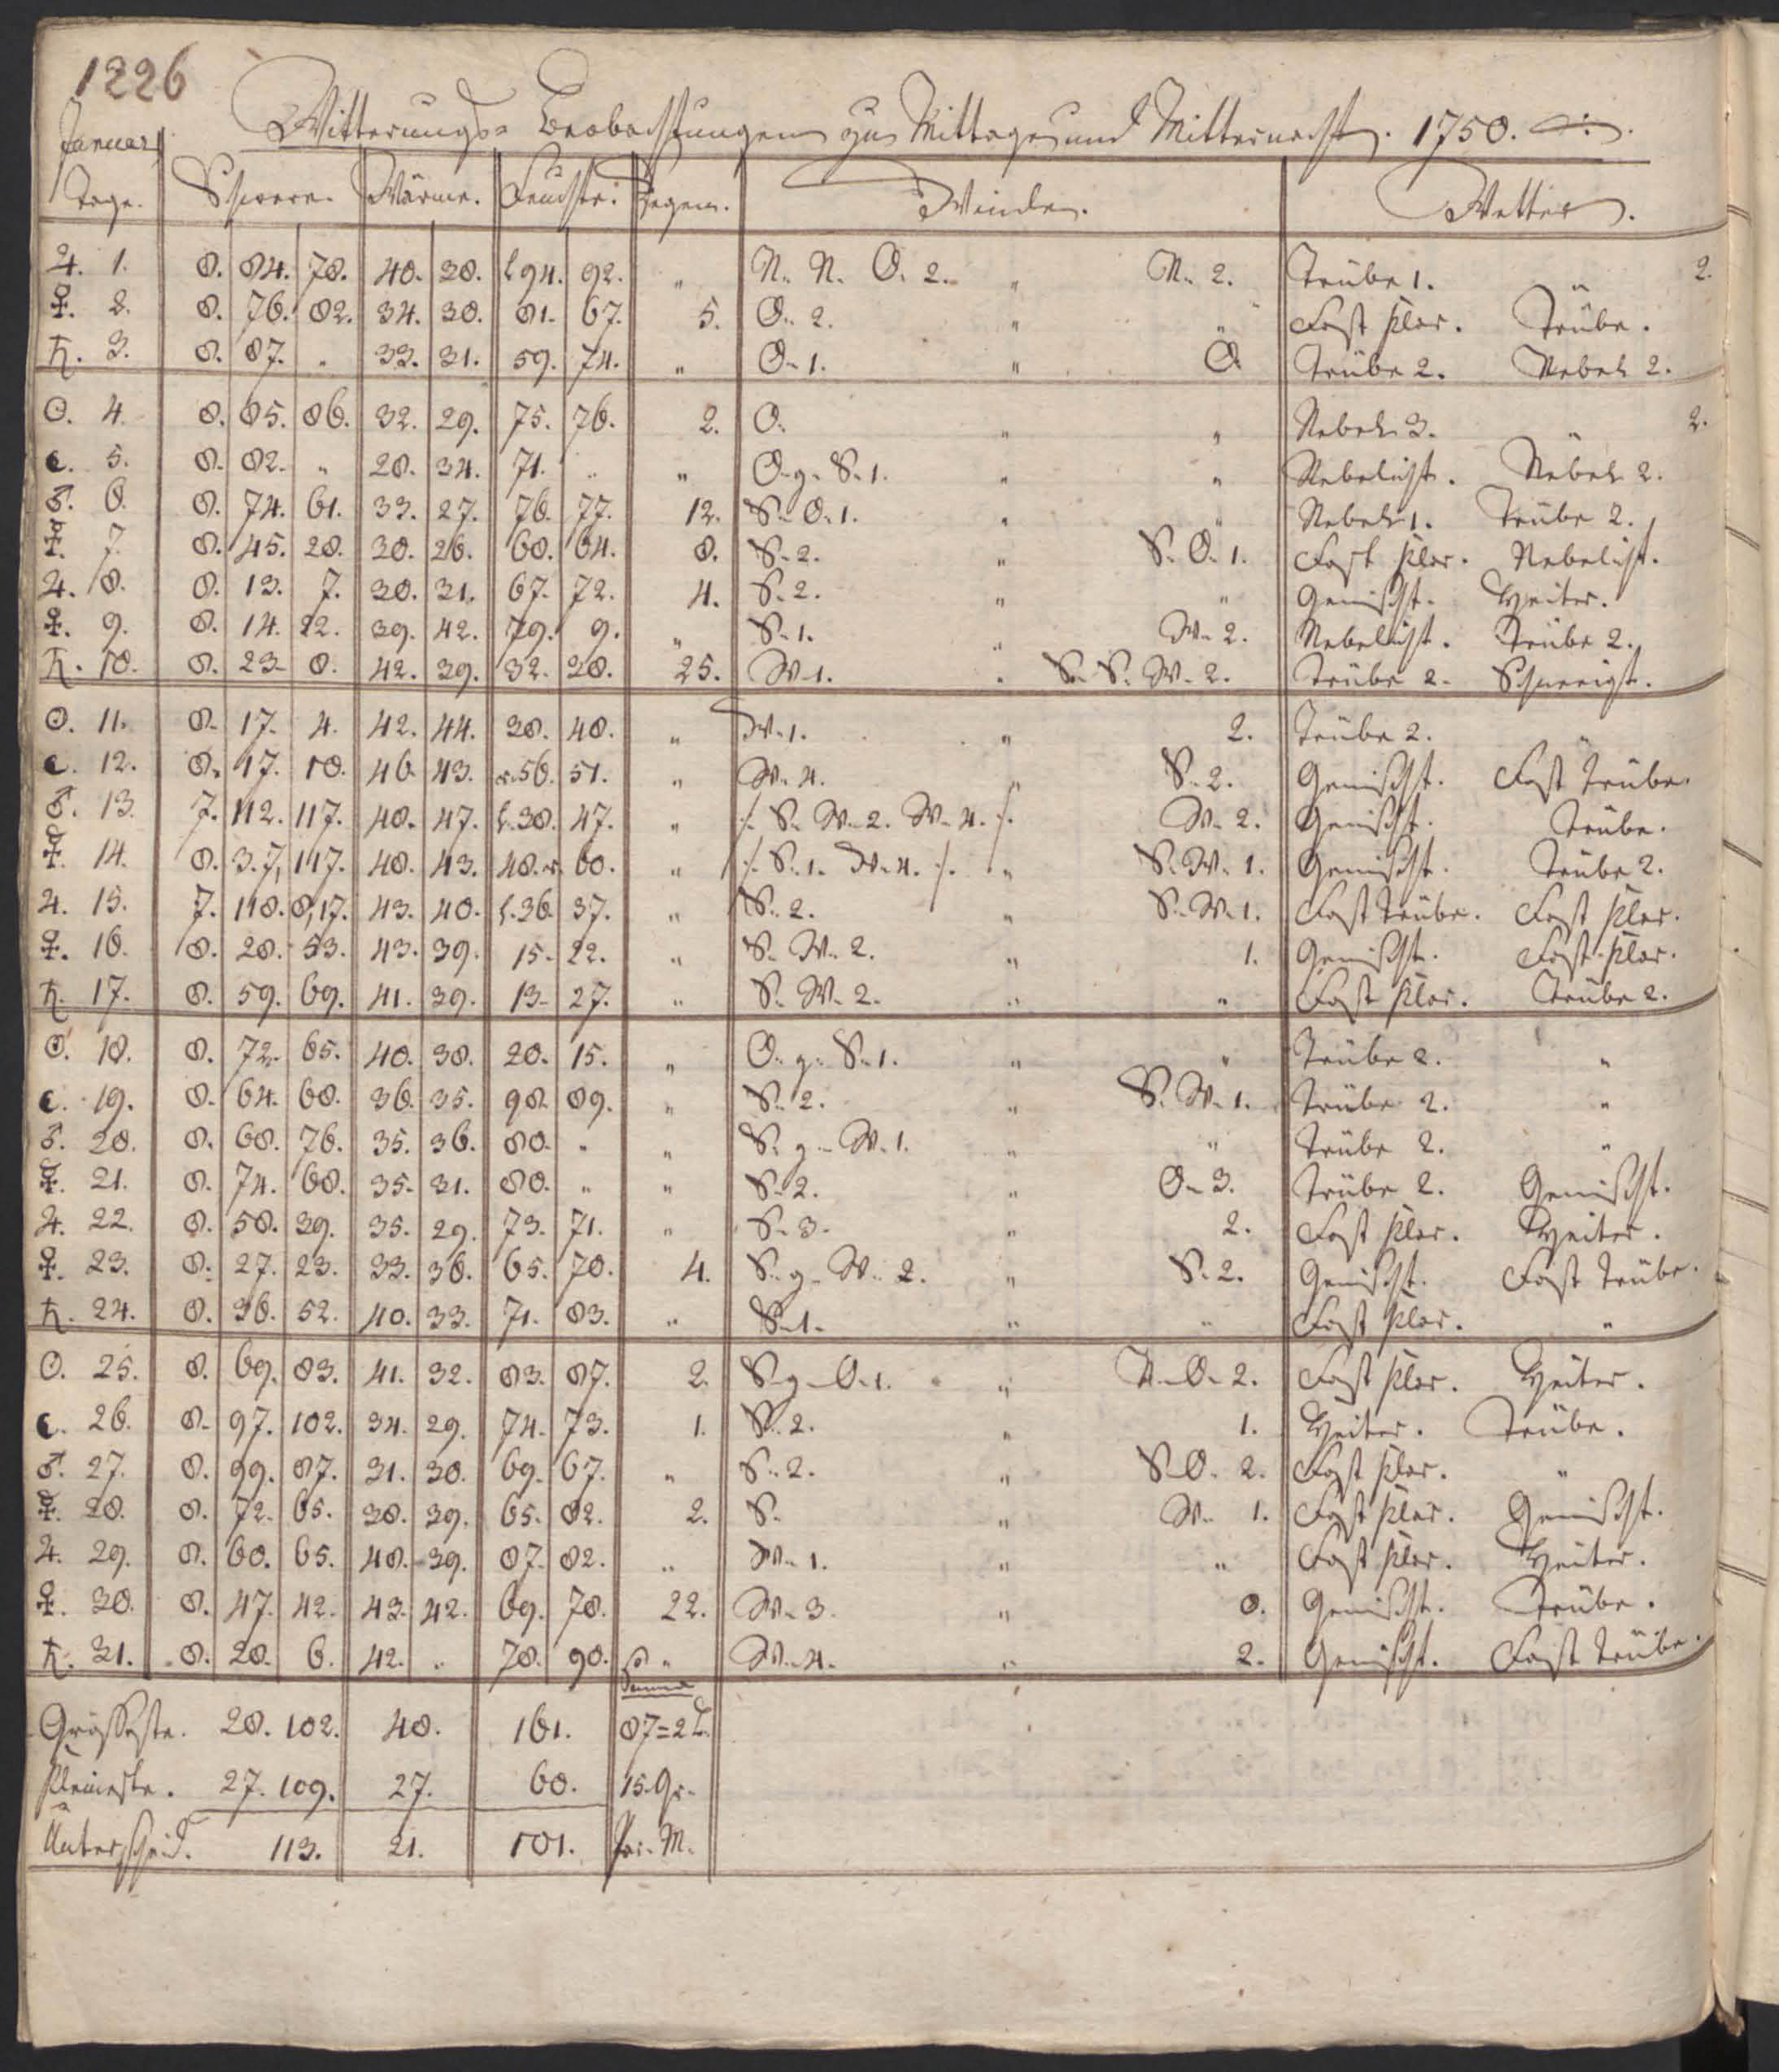 1226
Witterungs- Beobachtungen zu Mittage und Mitternacht. 1750.
Januar
Tage. Schwere. Wärme. Feuchte: Regen. Winde. Wetter.
♃. 1. 8. 84. 78. 40. 38. l 94. 92. „ N. N. O. 2. „ N. 2. Trübe 1. „ 2.
♀. 2. 8. 76. 82. 34. 30. 81. 67. 5. O. 2. „ „ Fast klar. Trübe.
♄. 3. 8. 87. „ 33. 31. 59. 74. „ O. 1. „ O. Trübe 2. Nebel 2.
☉. 4. 8. 85. 86. 32. 29. 75. 76. 2. O. „ „ Nebel 3. „ 2.
☾. 5. 8. 82. „ 28. 34. 71. „ „ O. g. S. 1. „ „ Nebelicht. Nebel 2.
♂. 6. 8. 74. 61. 33. 27. 76. 77. 12. S. O. 1. „ „ Nebel 1. Trübe 2.
☿. 7. 8. 45. 28. 30. 26. 68. 64. 8. S. 2. „ S. O. 1. Fast klar. Nebelicht.
♃. 8. 8. 13. 7. 30. 31. 67. 72. 4. S. 2. „ „ Gemischt. Heiter.
♀. 9. 8. 14. 22. 39. 42. 79. 9. „ S. 1. „ W. 2. Nebelicht. Trübe 2.
♄. 10. 8. 23. 8. 42. 39. 32. 28. 25. W. 1. „ S. S. W. 2. Trübe 2. Schneeigt.
☉. 11. 8. 17. 4. 42. 44. 38. 40. „ W. 1. „ 2. Trübe 2. „
☾. 12. 8. 17. 10. 46. 43. r. 56. 51. „ W. 4. „ S. 2. Gemischt. Fast Trübe.
♂. 13. 7. 112. 117. 48. 47. l. 38. 47. „ /. S. W. 2. W. 4. /. W. 2. Gemischt. Trübe.
☿. 14. 8. 3. 7, 117. 48. 43. 48. r. 60. „ /. S. 1. W. 4. /. „ S. W. 1. Gemischt. Trübe 2.
♃. 15. 7. 118. 8, 17. 43. 40. l. 36. 37. „ S. 2. „ S. W. 1. Fast Trübe. Fast klar.
♀. 16. 8. 28. 53. 43. 39. 15. 22. „ S. W. 2. „ 1. Gemischt. Fast klar.
♄. 17. 8. 59. 69. 41. 39. 13. 27. „ S. W. 2. „ „ Fast klar. Trübe 2.
☉. 18. 8. 72. 65. 40. 38. 20. 15. „ O. g. S. 1. „ „ Trübe 2. „
☾. 19. 8. 64. 68. 36. 35. 98. 89. „ S. 2. „ S. W. 1. Trübe 2. „
♂. 20. 8. 68. 76. 35. 36. 80. „ „ S. g. W. 1. „ „ Trübe 2. „
☿. 21. 8. 74. 68. 35. 31. 80. „ „ S. 2. „ O. 3. Trübe 2. Gemischt.
♃. 22. 8. 58. 39. 35. 29. 73. 71. „ S. 3. „ 2. Fast klar. Heiter.
♀. 23. 8. 27. 23. 33. 36. 65. 70. 4. S. g. W. 2. „ S. 2. Gemischt. Fast Trübe.
♄. 24. 8. 36. 52. 40. 33. 71. 83. „ S. 1. „ „ Fast klar. „
☉. 25. 8. 69. 83. 41. 32. 83. 87. 2. S. g. O. 1. „ N. O. 2. Fast klar. Heiter.
☾. 26. 8. 97. 102. 34. 29. 74. 73. 1. S. 2. „ 1. Heiter. Trübe.
♂. 27. 8. 99. 87. 31. 30. 69. 67. „ S. 2. „ S. O. 2. Fast klar. „
☿. 28. 8. 72. 65. 38. 39. 65. 82. 2. S. „ W. 1. Fast klar. Gemischt.
♃. 29. 8. 60. 65. 40. 39. 87. 82. „ W. 1. „ „ Fast klar. Heiter.
♀. 30. 8. 47. 42. 43. 42. 69. 78. 22. W. 3. „ 0. Gemischt. Trübe.
♄. 31. 8. 28. 6. 42. „ 78. 90. „ W. 4. „ 2. Gemischt. Fast Trübe.
Summa
Grösseste. 28. 102. 48. 161. 87=2 L.
Kleineste. 27. 109. 27. 60. 15. Gr.
Unterscheid. 113. 21. 101. Par. M.